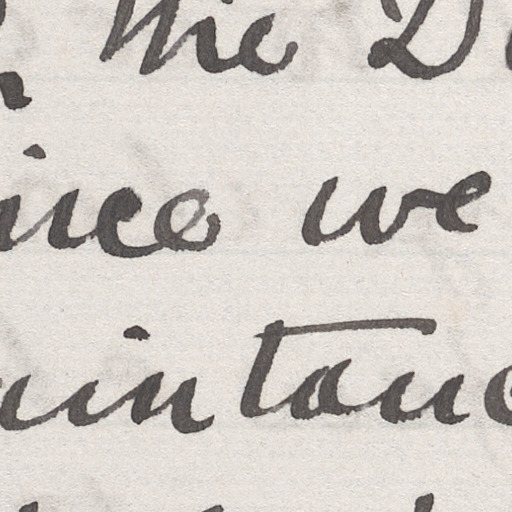 the D
ince we
aintanc